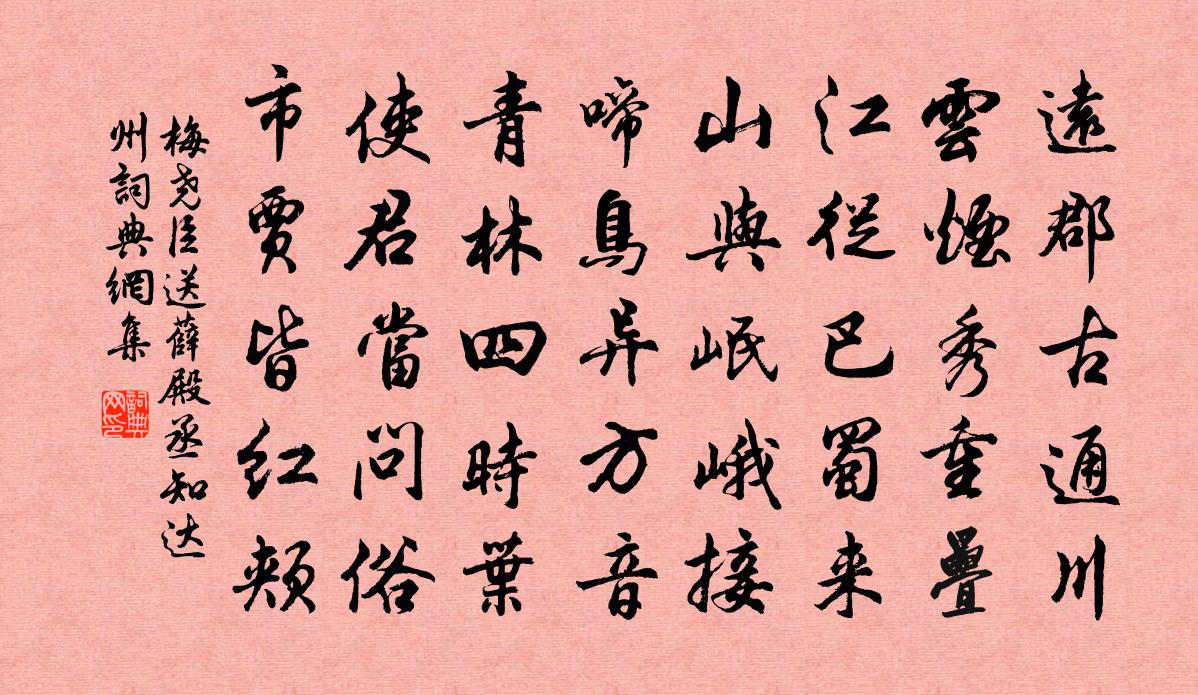 遠郡古通川
雲煙秀重疊
江從巴蜀来
山與岷峨接
啼鳥异方音
青林四時葉
使君當問俗
市賈皆紅頰
梅尧臣送薛殿丞知达
州詞典網集
詞典
网印